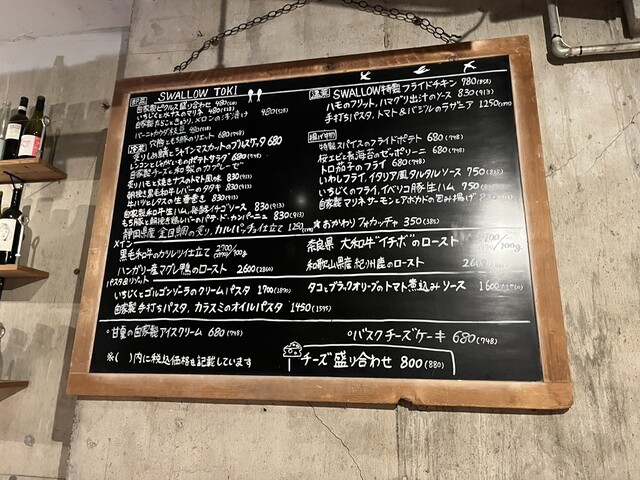 SWALLOW TOKI
前菜
自家製ピクルス盛り合わせ 480(528)
いちじくと水ナスのマリネ 480(528)
自家製 きゅうり、メロンの浅漬け 480(528)
バーニャカウダ枝豆 480(528)
穴子ともち豚のリエット 680(748)
冷菜
炙りしめ鯖とシャインマスカットのブルスケッタ 680
レンコンとじゃがいものポテトサラダ 680(748)
自家製チーズと和梨のカプレーゼ
炙りハモと焼きナスのトマト風味 830(913)
朝挽き黒毛和牛レバーのタタキ 830(913)
牛ハツとレタスの生春巻き 830(913)
自家製和牛生ハム、発酵イチゴソース 830(913)
もち豚と朝挽き鶏レバーのパテ・ド・カンパーニュ 830(913)
静岡県産 金目鯛の炙り、カルパッチョ仕立て 1250
温菜
SWALLOW特製フライドチキン 780(858)
ハモのフリット、ハマグリ出汁のソース 830(913)
手打ちパスタ、トマト&バジルのラザニア 1250
揚げ物
特製スパイスのフライドポテト 680(748)
桜エビと青海苔のゼッポリーニ 680(748)
トロ茄子のフライ 680(748)
いわしフライ、イタリア風タルタルソース 750
いちじくのフライ、イベリコ豚生ハム 750
自家製マリネサーモンとアボカドの包み揚げ 830
★おかわりフォカッチャ 350(385)
メイン
黒毛和牛のカツレツ仕立て 2700 /100g
ハンガリー産マグレ鴨のロースト 2600(2860)
奈良県 大和牛"イチボ"のロースト /100g
和歌山県産 紀州鹿のロースト
パスタ&リゾット
いちじくとゴルゴンゾーラのクリームパスタ 1700(1870)
自家製手打ちパスタ、カラスミのオイルパスタ 1450(1595)
タコとブラックオリーブのトマト煮込みソース 1600
○甘夏の自家製アイスクリーム 680(748)
○バスクチーズケーキ 680(748)
※( )内に税込価格を記載しています
チーズ盛り合わせ 800(880)